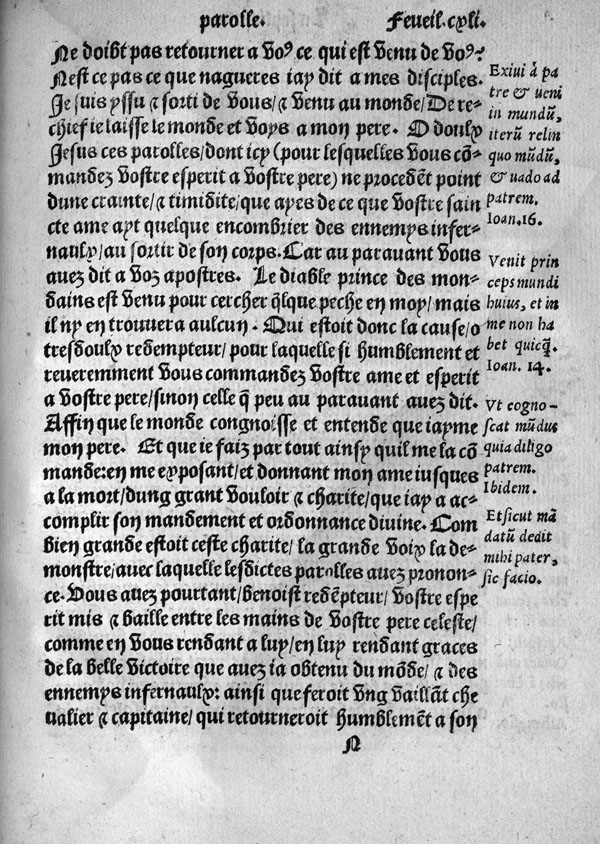 parolle. Feueil. cxli.
Ne doibt pas retourner a voꝰ ce qui est venu de voꝰ:
Nest ce pas ce que nagueres iay dit a mes disciples.
Je suis yssu ⁊ sorti de vous/⁊ venu au monde/De re-
chief ie laisse le monde et voys a mon pere. O doulx
Jesus ces parolles/dont icy (pour lesquelles vous cō-
mandez vostre esperit a vostre pere) ne procedēt point
dune crainte/⁊ timidite/que ayes de ce que vostre sain
cte ame ayt quelque encombrier des ennemys infer-
naulx/au sortir de son corps. Car au parauant vous
auez dit a voz apostres. Le diable prince des mon-
dains est venu pour cercher q̄lque peche en moy/mais
il ny en trouuera aulcun. Qui estoit donc la cause/o
tresdoulx redempteur/pour laquelle si humblement et
reueremment vous commandez vostre ame et esperit
a vostre pere/sinon celle q̄ peu au parauant auez dit.
Affin que le monde congnoisse et entende que iayme
mon pere. Et que ie faiz par tout ainsy quil me la cō
mande: en me exposant/et donnant mon ame iusques
a la mort/dung grant vouloir ⁊ charite/que iay a ac-
complir son mandement et ordonnance diuine. Com
bien grande estoit ceste charite/ la grande voix la de-
monstre/auec laquelle lesdictes parolles auez pronon-
ce. Vous auez pourtant/benoist redēpteur/ vostre espe
rit mis ⁊ baille entre les mains de vostre pere celeste/
comme en vous rendant a luy/en luy rendant graces
de la belle victoire que auez ia obtenu du mōde/ ⁊ des
ennemys infernaulx: ainsi que feroit vng vaillāt che
ualier ⁊ capitaine/ qui retourneroit humblemēt a son
N
Exiui à pa
tre & ueni
in mundũ,
iterũ relin
quo mũdũ,
& uado ad
patrem.
Ioan.16.
Venit prin
ceps mundi
huius, et in
me non ha
bet quicq̃.
Ioan. 14.
Vt cogno-
scat mũdus
quia diligo
patrem.
Ibidem.
Et sicut mã
datũ dedit
mihi pater,
sic facio.